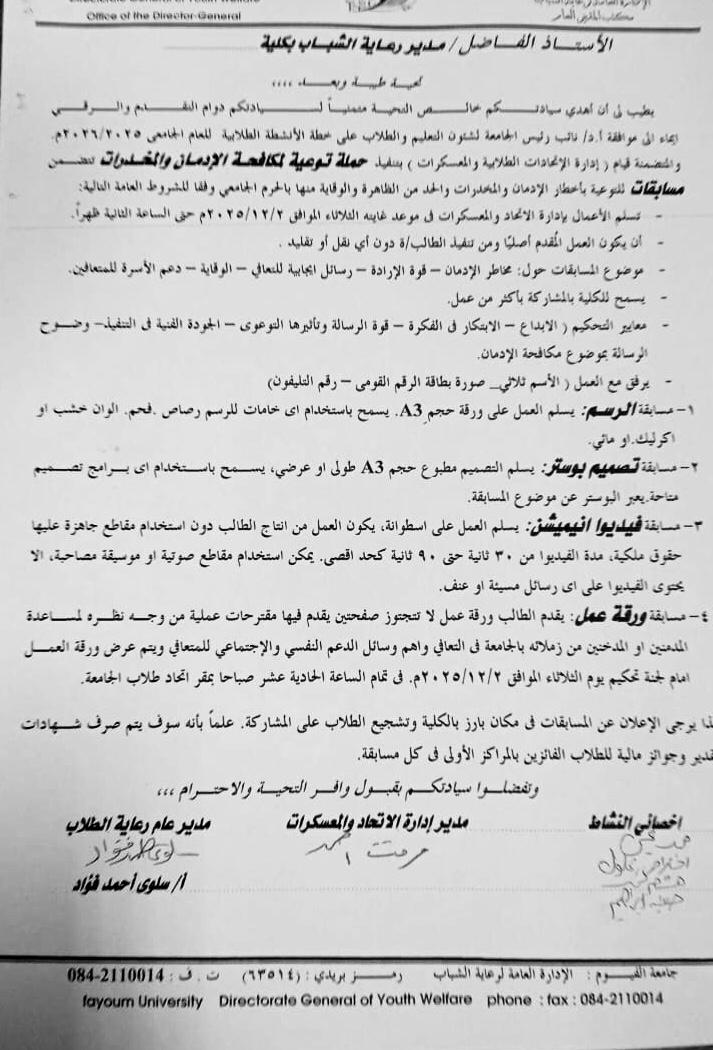 Directorate General of Youth Welfare
Office of the Director-General
مكتب المدير العام
الأستاذ الفاضل / مدير رعاية الشباب بكلية
تحية طيبة وبعد ،،،،
يطيب لى أن أهدي سيادتكم خالص التحية متمنياً لسيادتكم دوام التقدم والرقي
إيماء الى موافقة أ.د/ نائب رئيس الجامعة لشئون التعليم والطلاب على خطة الأنشطة الطلابية للعام الجامعى ٢٠٢٦/٢٠٢٥م.
والمتضمنة قيام ( إدارة الإتحادات الطلابية والمعسكرات ) بتنفيذ حملة توعية لمكافحة الإدمان والمخدرات تتضمن
مسابقات للتوعية بأخطار الإدمان والمخدرات والحد من الظاهرة والوقاية منها بالحرم الجامعي وفقا للشروط العامة التالية:
- تسلم الأعمال بإدارة الاتحاد والمعسكرات فى موعد غايته الثلاثاء الموافق ٢٠٢٥/١٢/٢م حتى الساعة الثانية ظهراً.
- أن يكون العمل المُقدم أصليًا ومن تنفيذ الطالب/ة دون أي نقل أو تقليد .
- موضوع المسابقات حول: مخاطر الإدمان – قوة الإرادة – رسائل ايجابية للتعافي – الوقاية – دعم الأسرة للمتعافين.
- يسمح للكلية بالمشاركة بأكثر من عمل.
- معايير التحكيم ( الابداع – الابتكار فى الفكرة – قوة الرسالة وتأثيرها التوعوى – الجودة الفنية فى التنفيذ– وضوح
الرسالة بموضوع مكافحة الإدمان.
- يرفق مع العمل ( الأسم ثلاثي_ صورة بطاقة الرقم القومى – رقم التليفون)
١– مسابقة الرسم: يسلم العمل على ورقة حجم A3. يسمح باستخدام اى خامات للرسم رصاص .فحم. الوان خشب او
اكرليك.او مائي.
٢– مسابقة تصميم بوستر: يسلم التصميم مطبوع حجم A3 طولى او عرضي، يسمح باستخدام اى برامج تصميم
متاحة.يعبر البوستر عن موضوع المسابقة.
٣– مسابقة فيديوا انيميشن: يسلم العمل على اسطوانة، يكون العمل من انتاج الطالب دون استخدام مقاطع جاهزة عليها
حقوق ملكية، مدة الفيديوا من ٣٠ ثانية حتى ٩٠ ثانية كحد اقصى. يمكن استخدام مقاطع صوتية او موسيقة مصاحبة، الا
يحتوى الفيديوا على اى رسائل مسيئة او عنف.
٤– مسابقة ورقة عمل: يقدم الطالب ورقة عمل لا تتجتوز صفحتين يقدم فيها مقترحات عملية من وجه نظره لمساعدة
المدمنين او المدخنين من زملائه بالجامعة فى التعافي واهم وسائل الدعم النفسي والإجتماعي للمتعافي ويتم عرض ورقة العمل
امام لجنة تحكيم يوم الثلاثاء الموافق ٢٠٢٥/١٢/٢م. فى تمام الساعة الحادية عشر صباحا بمقر اتحاد طلاب الجامعة.
يرجى الإعلان عن المسابقات فى مكان بارز بالكلية وتشجيع الطلاب على المشاركة. علماً بأنه سوف يتم صرف شهادات
وجوائز مالية للطلاب الفائزين بالمراكز الأولى فى كل مسابقة.
وتفضلوا سيادتكم بقبول وافر التحية والاحترام ،،،
اخصائي النشاط مدير إدارة الاتحاد والمعسكرات مدير عام رعاية الطلاب
أ/ سلوى أحمد فؤاد
جامعة الفيوم : الإدارة العامة لرعاية الشباب رمز بريدي : (٦٣٥١٤) ت . ف : 084-2110014
fayoum University Directorate General of Youth Welfare phone : fax : 084-2110014